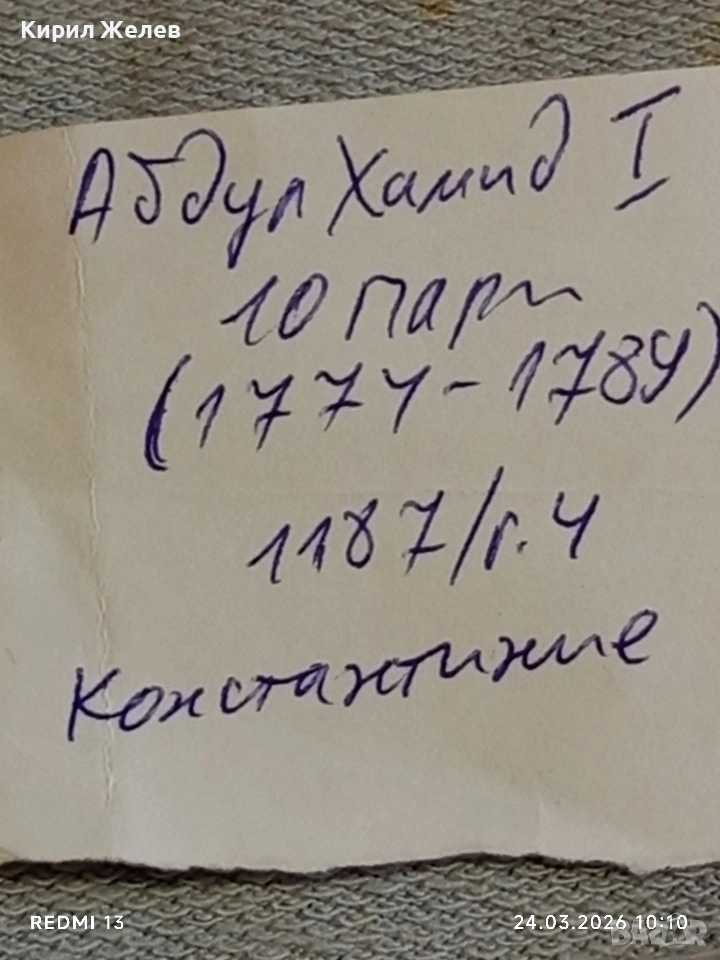 Кирил Желев
Абдул Хамид I
10 пари
(1774-1789)
1187/г.4
Константиние
REDMI 13
24.03.2026 10:10
BAZAR